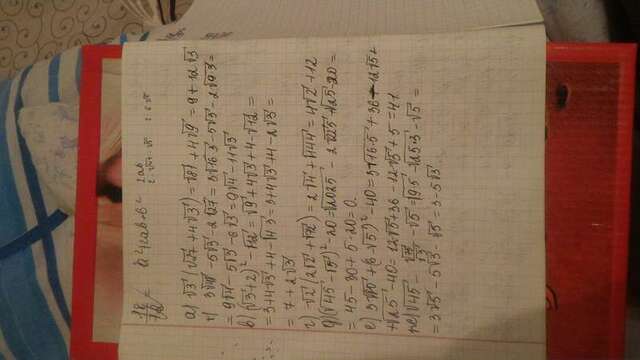 a² + 2ab + b² 2ab
а) √3 (√27 + 4√3) = √81 + 4√9 = 9 + 12√3
- 5√3 - 2√27 = 3√16·3 - 5√3 - 2√9·3 =
в) (√3 + 2)² - √12 = √9 + 4√3 + 4 - √12 =
= 3 + 4√3 + 4 - √4·3 = 3 + 4√3 + 4 - 2√3 =
= 7 + 2√3
г) √2 (2√2 + √72) = 2√4 + √144 = 4√2 + 12
д) (√45 - √5)² - 20 = √2025 - 2√225 + √25 - 20 =
= 45 - 30 + 5 - 20 = 0.
е) + (6 - √5)² - 40 = 3√16·5 + 36 - 12√5 +
+ √25 - 40 = 12√5 + 36 - 12√5 + 5 = 41
- √5 = √9·5 - √25·3 - √5 =
= 3√5 - 5√3 - √5 = 3 - 5√3.